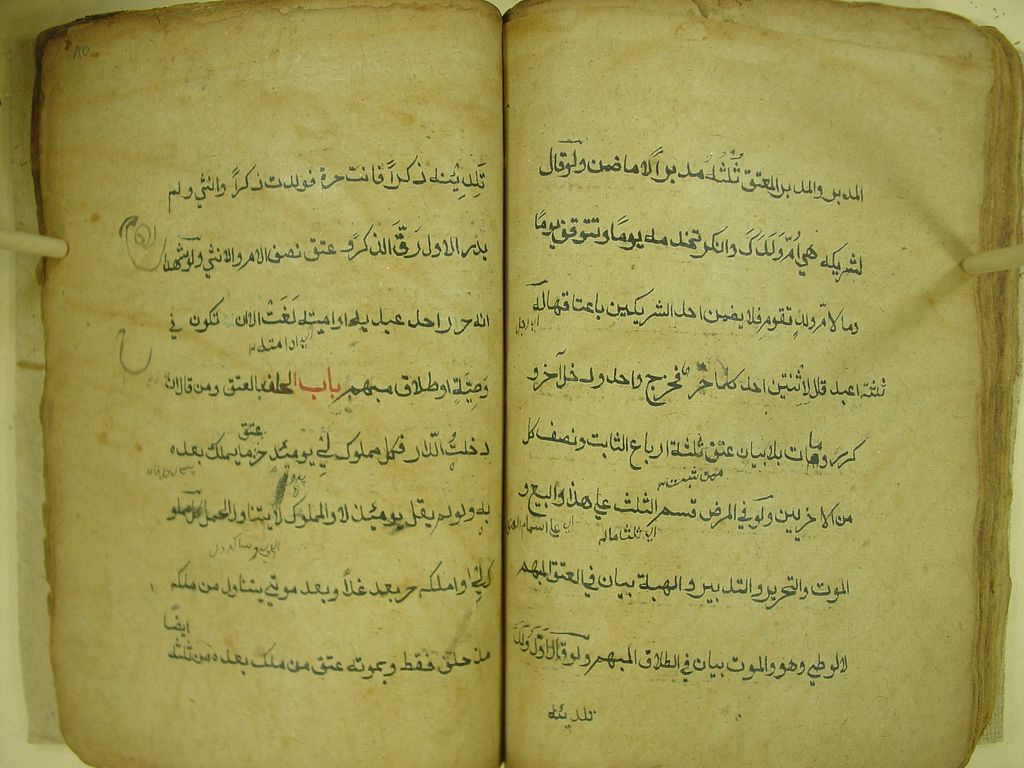 المدبر والمدبر المعتق ثلثه مدبرا لا ما ضمن ولو قال
لشريكه هي ام ولدك وانكر تخدمه يوما وتتوقف يوما
وما لام ولد تقوم فلا يضمن احد الشريكين باعتاقها له
ثلثة اعبد قال لاثنين احد كما حر فخرج واحد ودخل آخر و
كرر ومات بلا بيان عتق ثلثة ارباع الثابت ونصف كل
من الاخرين ولو في المرض قسم الثلث علي هذا والبيع و
اي ثلث ماله
الموت والتحرير والتدبير والهبة بيان في العتق المبهم
لا الوطي وهو والموت بيان في الطلاق المبهم ولو قال اول ولد
تلدينه
٨٥
تلدينه ذكرا فانت حرة فولدت ذكرا وانثي ولم
يدر الاول رق الذكر و عتق نصف الام والانثي ولو شهدا
انه حرر احد عبديه او امتيه لغت الا ان تكون في
وصية او طلاق مبهم باب الحلف بالعتق ومن قال ان
دخلت الدار فكل مملوك لي يومئذ حر ما يملك بعده
عتق
به ولو لم يقل يومئذ لا والمملوك لا يتناول الحمل كل مملو
ك لي او املكه حر بعد غد او بعد موتي يتناول من ملكه
ايضا
مذ حلف فقط وبموته عتق من ملك بعده من ثلثه